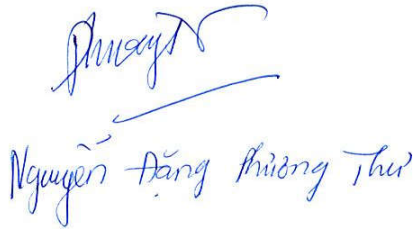 Nguyễn Đặng Phương Thư